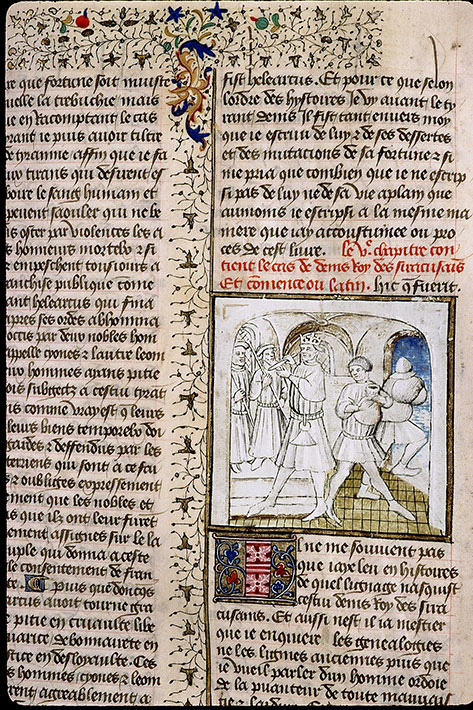 re que fortune soit muistre
uelle la trebuchie mais
en Racomptant le cas
rant ie puis auoir tiltre
de tyranne affin que ie sa
uy tirans qui desirent es
boire le sang humain et
peuent saouler qui ne be
s oster par violences les a
s honneurs mortelz &
empeschent tousiours a
anchise publique come
ant heleartus qui fina
apres ses ordes abhomina
occis par deux nobles hom
appelle cyones & lautre leom
ux hommes ayans pitie
ois subgectz a cestui tyrat
us comme vray est q leurs
leurs biens temporelz doi
gardes & deffendus par les
terriens qui sont a ce fai
s & oubligez expressement
ement que les nobles et
s que ilz ont leur furet
ement assignes sur le la
uple qui donna a ceste
le consentement de fran
te. Puis que doncqs
artus auoit tourne gra
e pitie en cruaulte libe
uarice debonnairete en
tice en desloyaulte. Ces
s hommes cyones & leom
rent agreablement a
fist heleartus. Et pour ce que selon
lordre des hystoires Je vy auant le ty
rant denis Il fist tant enuers moy
que ie escriui de luy & de ses dessertes
et des mutacions de sa fortune & si
me pria que combien que ie ne escrip
si pas de luy ne de sa vie a plain que
aumoins ie escripsi a la mesme ma
niere que iay acoustumee ou pro
ces de cest liure. le v.e chapitre con
tient le cas de denis Roy des siracusais
Et comence ou latin. hic q fuerit.
Il ne me souuient pas
que iaye leu en histoires
de quel lignage nasquist
cestui denis Roy des sira
cusains. Et aussi nest il ia mestier
que ie enquiere les genealogies
ne les lignies anciennes puis que
ie vueil parler dun homme ordoie
de la puanteur de toute mauuais